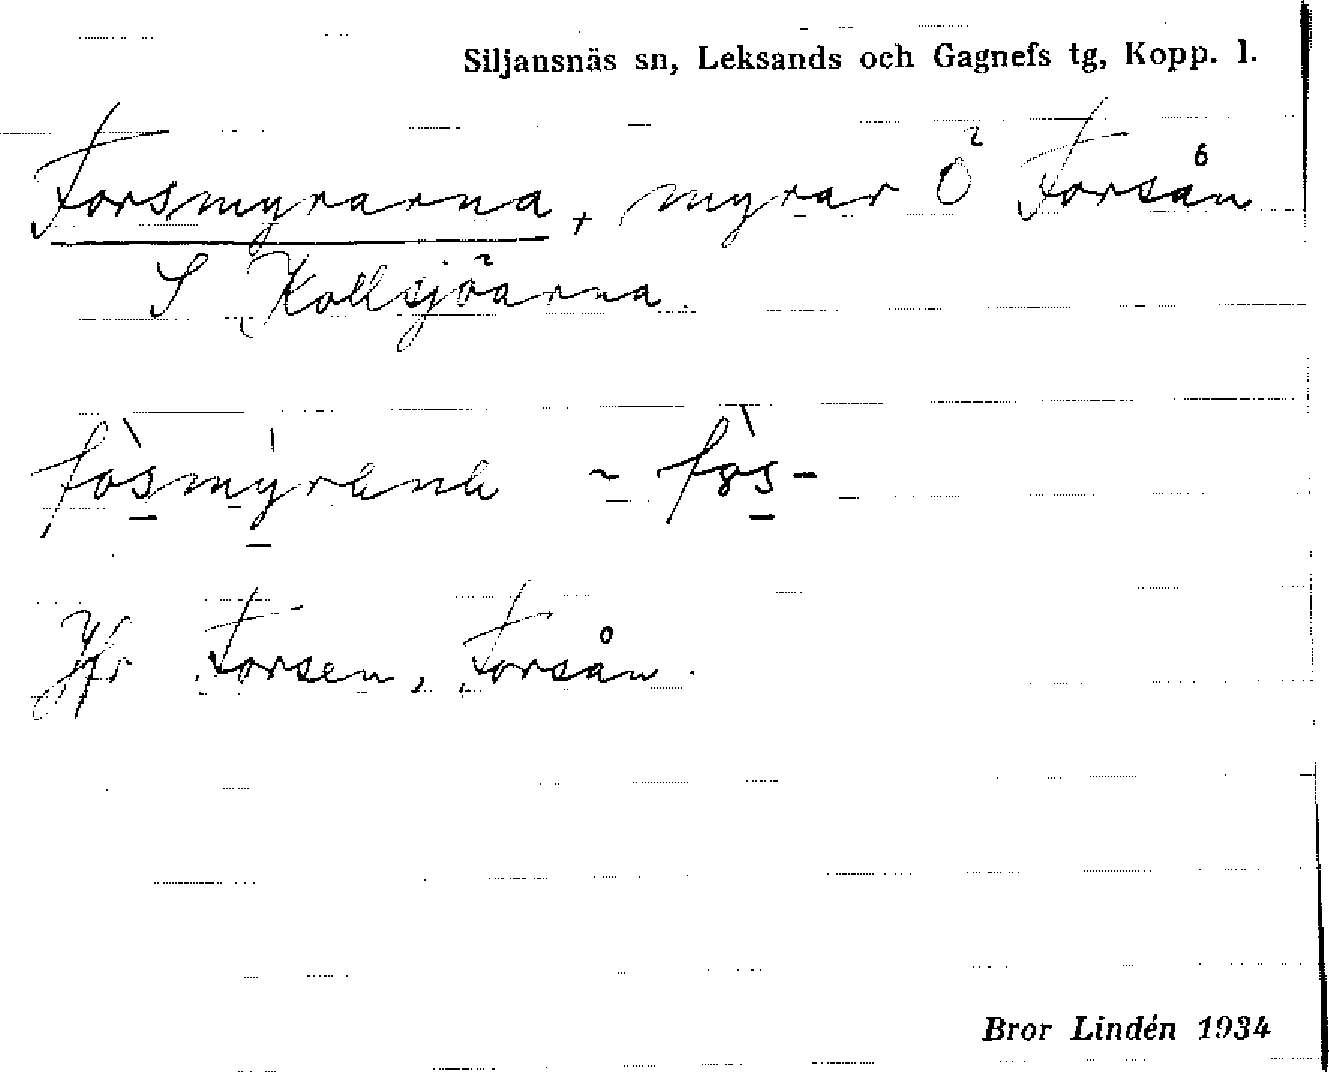 Siljansnäs sn, Leksands och Gagnefs tg, Kopp. l.
Forsmyrarna, myrar Ö Forsån
S Kollsjöarna.
fòsmýrana ~ fòs-
Jfr Forsen, Forsån.
Bror Lindén 1934